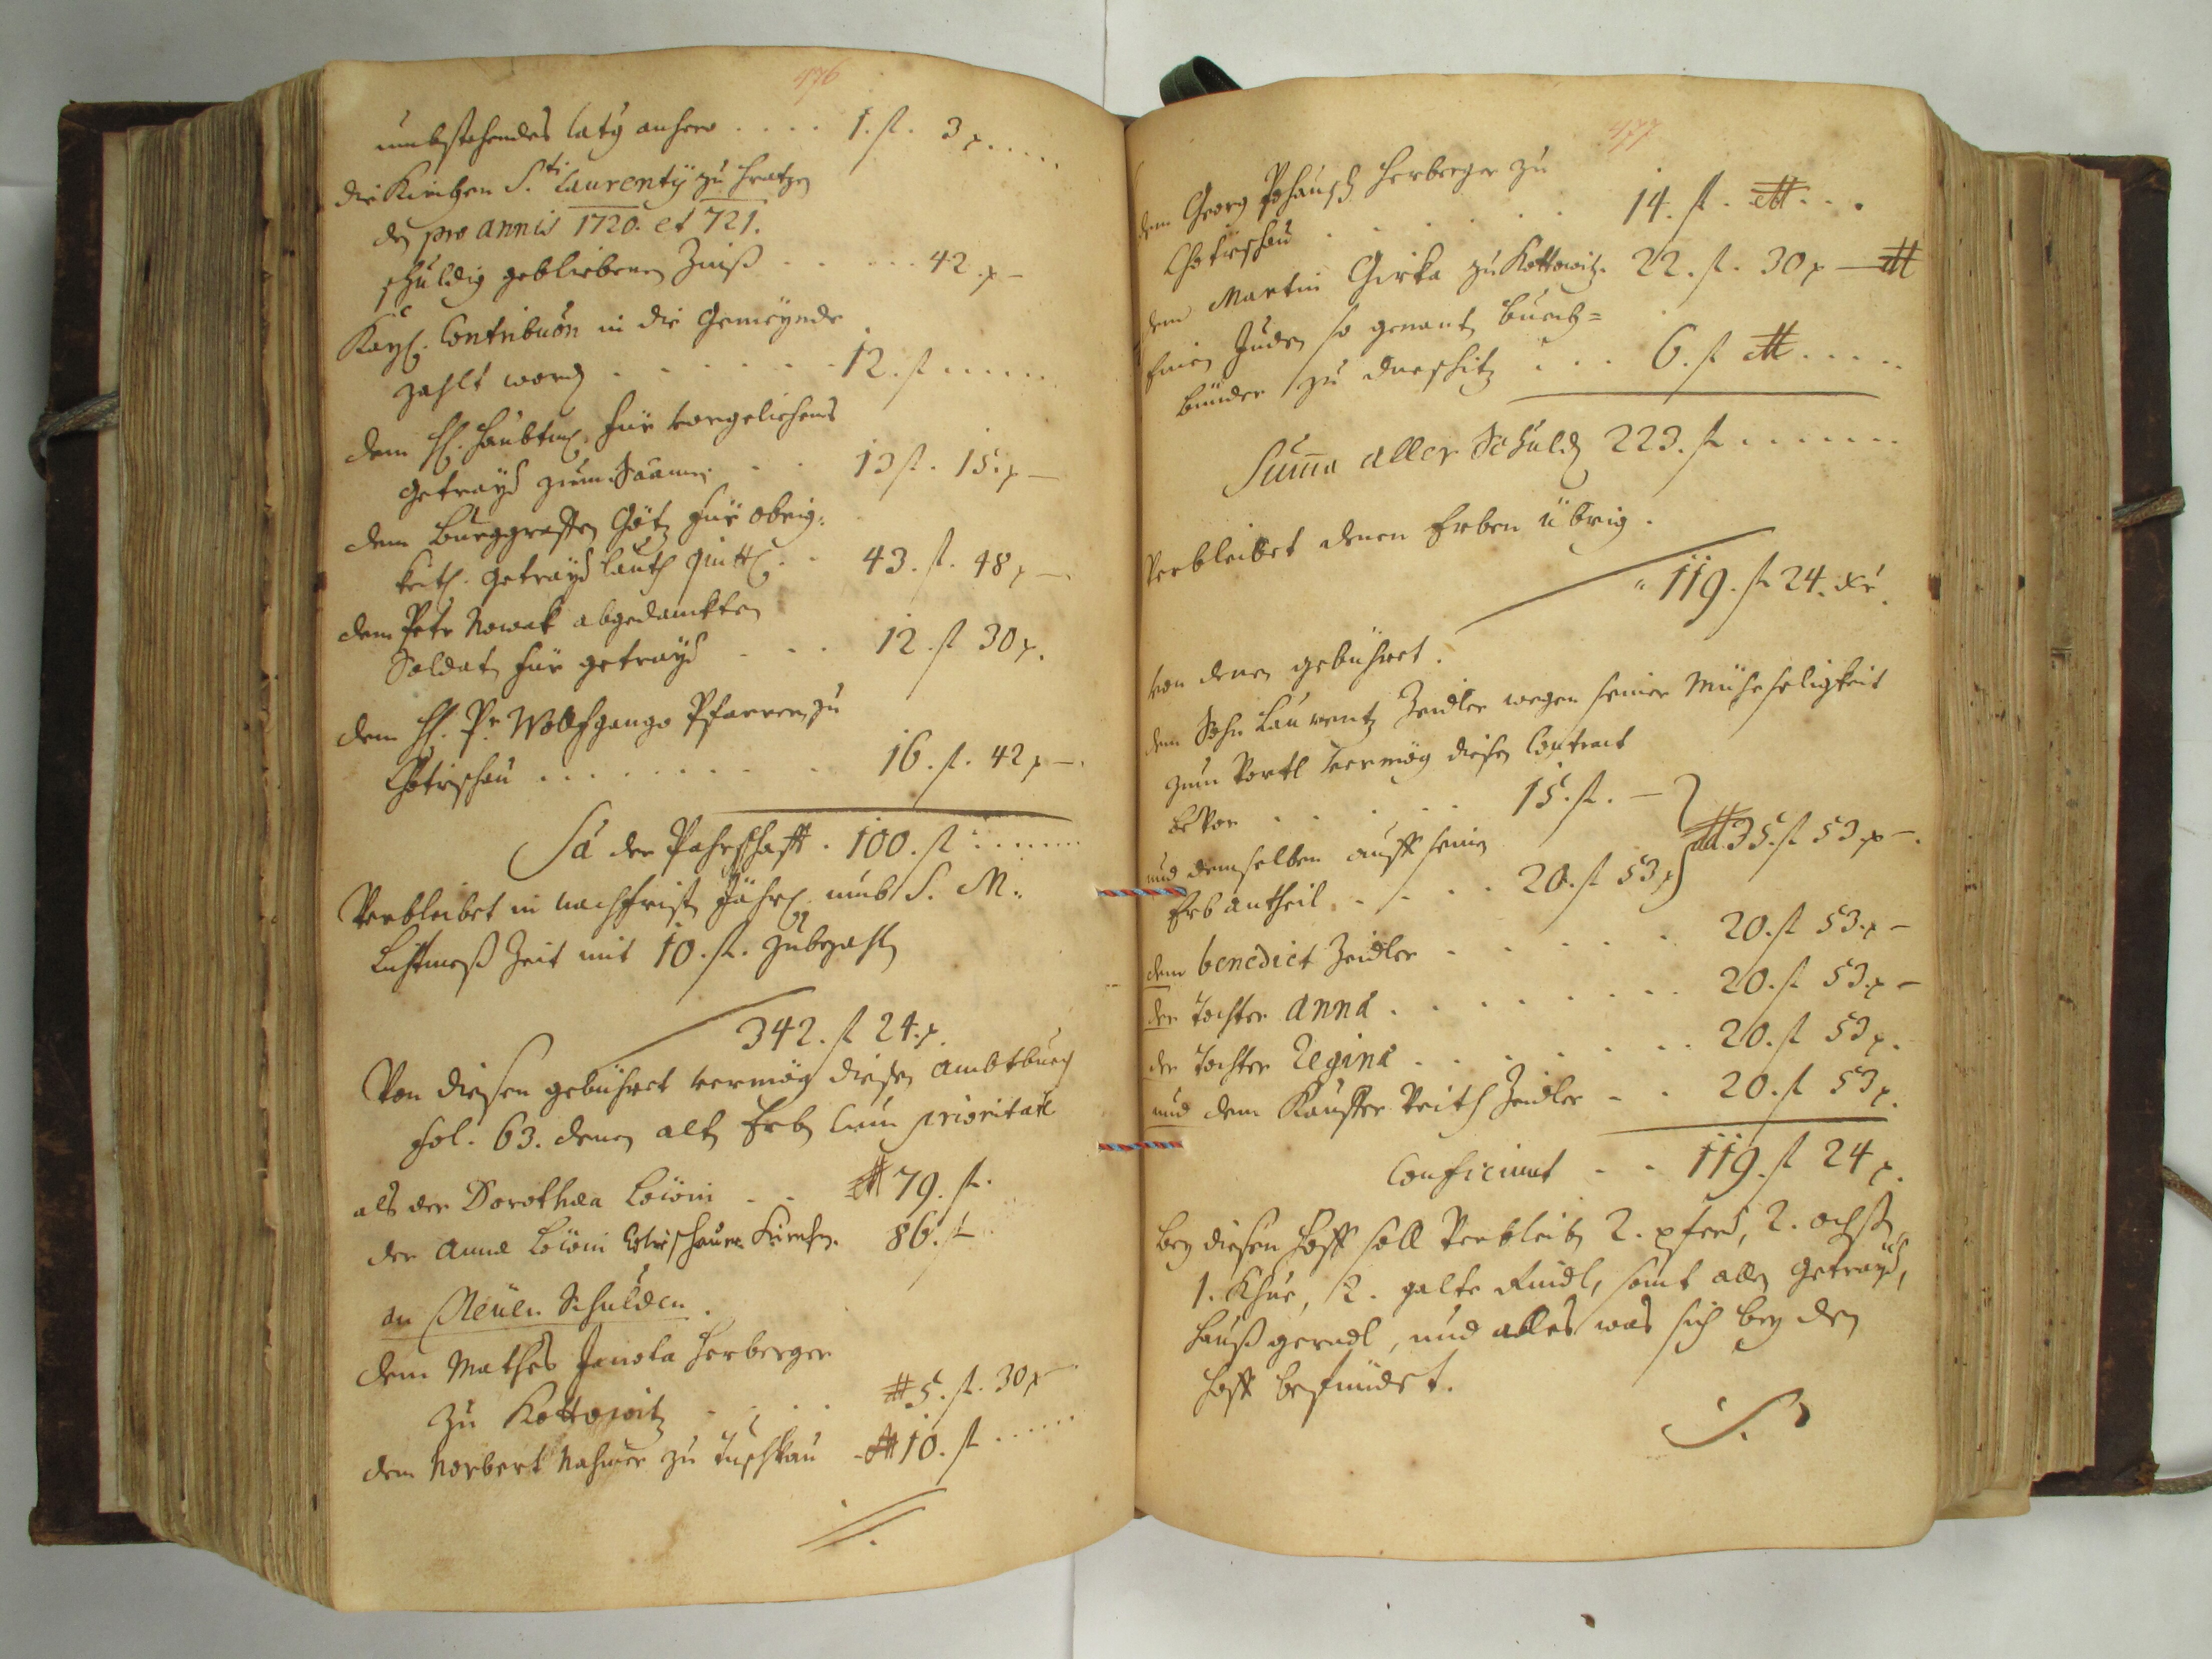 476
umbstehendes latg anhero . . . . 1. fl. 3 x . . . . .
die Kirchen S.ti Laurentÿ zu Hratzen
den pro annis 1720. et 721.
schuldig gebliebenen Zinß . . . . . . 42. x –
Kaÿs. Contribuôn in die Gemeÿnde
zahlt worden . . . . . . . 12. fl . . . . . .
dem H. Haubtm. für vorgeliehenes
getraÿd zum Saamen . . 13 fl. 15. x –
dem Burggraffen Götz für obrig:
keitl. getraÿd lauth quitt. . . 43. fl. 48 x –.
dem Petr Nowak abgedanckten
Soldaten für getraÿd . . . 12. fl 30 x.
dem H. Pr. Wolffgango Pfarrern zu
Chotieschau . . . . . . . . 16. fl. 42 x –.
Sa der Pahrschafft . 100. fl . . . . . . .
Verbleibet in nachfristen Jährl. umb S. M.
Lichtmeß Zeit mit 10. fl. zubezahlen
342. fl 24. x.
Von diesen gebühret vermög diesen ambtbuch
fol. 63. denen alten Erben cum prioritate
als der Dorothea . . 79. fl.
der Anna 86. fl
an Neüen Schulden.
dem Mathes Janota Herberger
zu Kottowitz . . . . 5. fl. 30 x –
dem Norbert zu Tuschkau – 10. fl . . . . . .
477
dem Georg Herberger zu
Chotieschau . . . . . . 14. fl. . . .
dem Martin Girka zu Kottowitz. 22. fl. 30 x –
Einen Juden so genant buech=
binder zu . . . 6. fl . . . . .
Summa aller Schulden 223. fl . . . . . . .
Verbleibet denen Erben übrig.
119. fl 24. xr.
von denen gebühret.
dem Sohn Laurentz Zeidler wegen seiner Müheseligkeit
zum Vortl vermög diesen Contract
bevor . . . . . . 15. fl. –
und demselben auff seinen 35. fl 53. x –.
Erbantheil . . . . 20. fl 53 x
dem benedict Zeidler . . . . . . 20. fl 53. x –
der Tochter Anna . . . . . . . . 20. fl 53. x –
der Tochter Regina . . . . . . . . 20. fl 53 x.
und dem Kauffer Veith Zeidler – . 20. fl 53 x.
Conficiunt . . 119. fl 24 x.
beÿ diesen Hoff soll Verbleiben 2. pferd, 2. ochsen
1. Khue, 2. galte Rindl, samt allen getraÿd,
Haußgerädl, und alles was sich beÿ den
Hoff befindet.